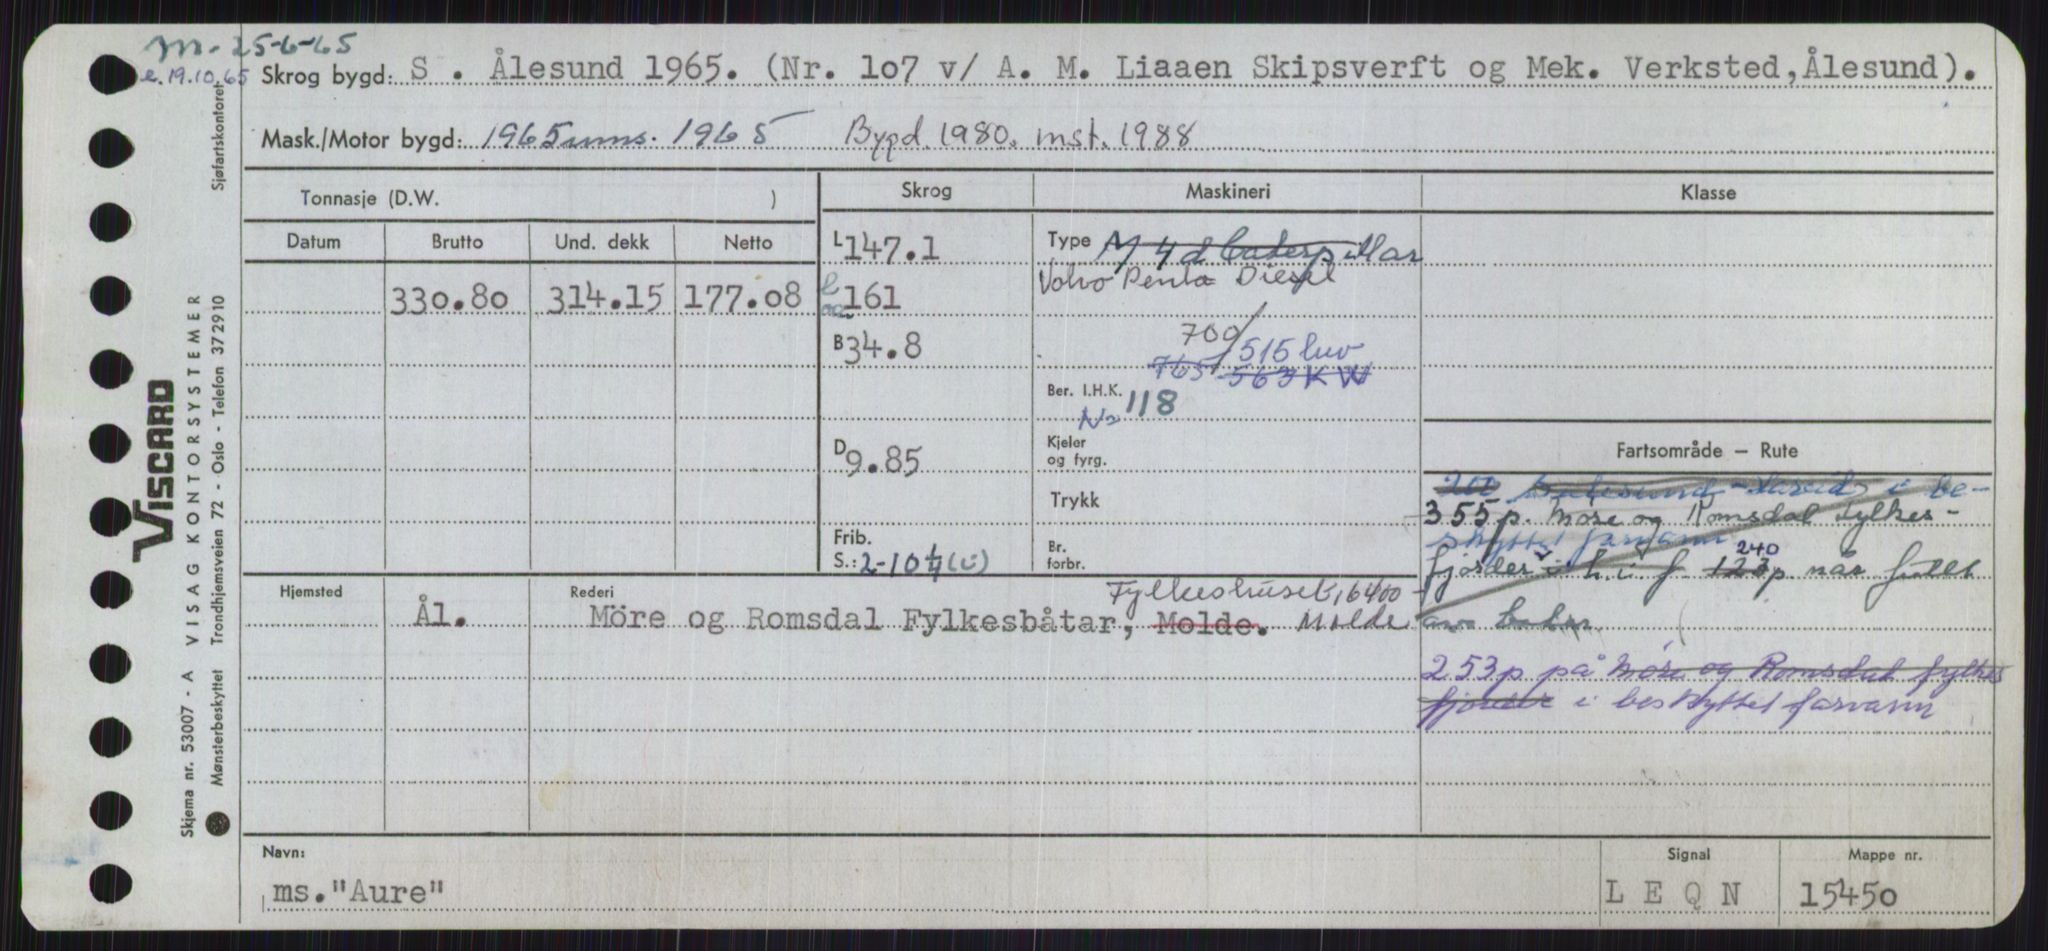 m. 25-6-65
e. 19.10.65
Skrog bygd: S . Ålesund 1965. (Nr. 107 v/ A. M. Liaaen Skipsverft og Mek. Verksted, Ålesund).
Mask./Motor bygd: 1965 1965 Bygd 1980. inst. 1988
Tonnasje (D.W. )
Skrog
Maskineri
Klasse
Datum Brutto Und. dekk Netto
L 147.1
Type M 4 d Caterpillar
Volvo Penta Diesel
330.80 314.15 177.08
l oa. 161
B 34.8
700/
765 515 kw
563 KW
Ber. I.H.K.
118
D 9.85
Kjeler
og fyrg.
Trykk
Fartsområde – Rute
i be-
355 p. Møre og Romsdal fylkes-
skyttet farvann
fjorder 240
123 p når fullt
Frib.
S.: 2-10
Br.
forbr.
Hjemsted
Ål.
Rederi
Fylkeshuset, 6400
Möre og Romsdal Fylkesbåtar, Molde. Molde
253 p på Møre og Romsdal fylkes
fjorder i beskyttet farvann
Navn:
ms. "Aure"
Signal
L E Q N
Mappe nr.
15450
VISCARD
Skjema nr. 53007 - A VISAG KONTORSYSTEMER
Mønsterbeskyttet Trondhjemsveien 72 - Oslo - Telefon 37 29 10
Sjøfartskontoret